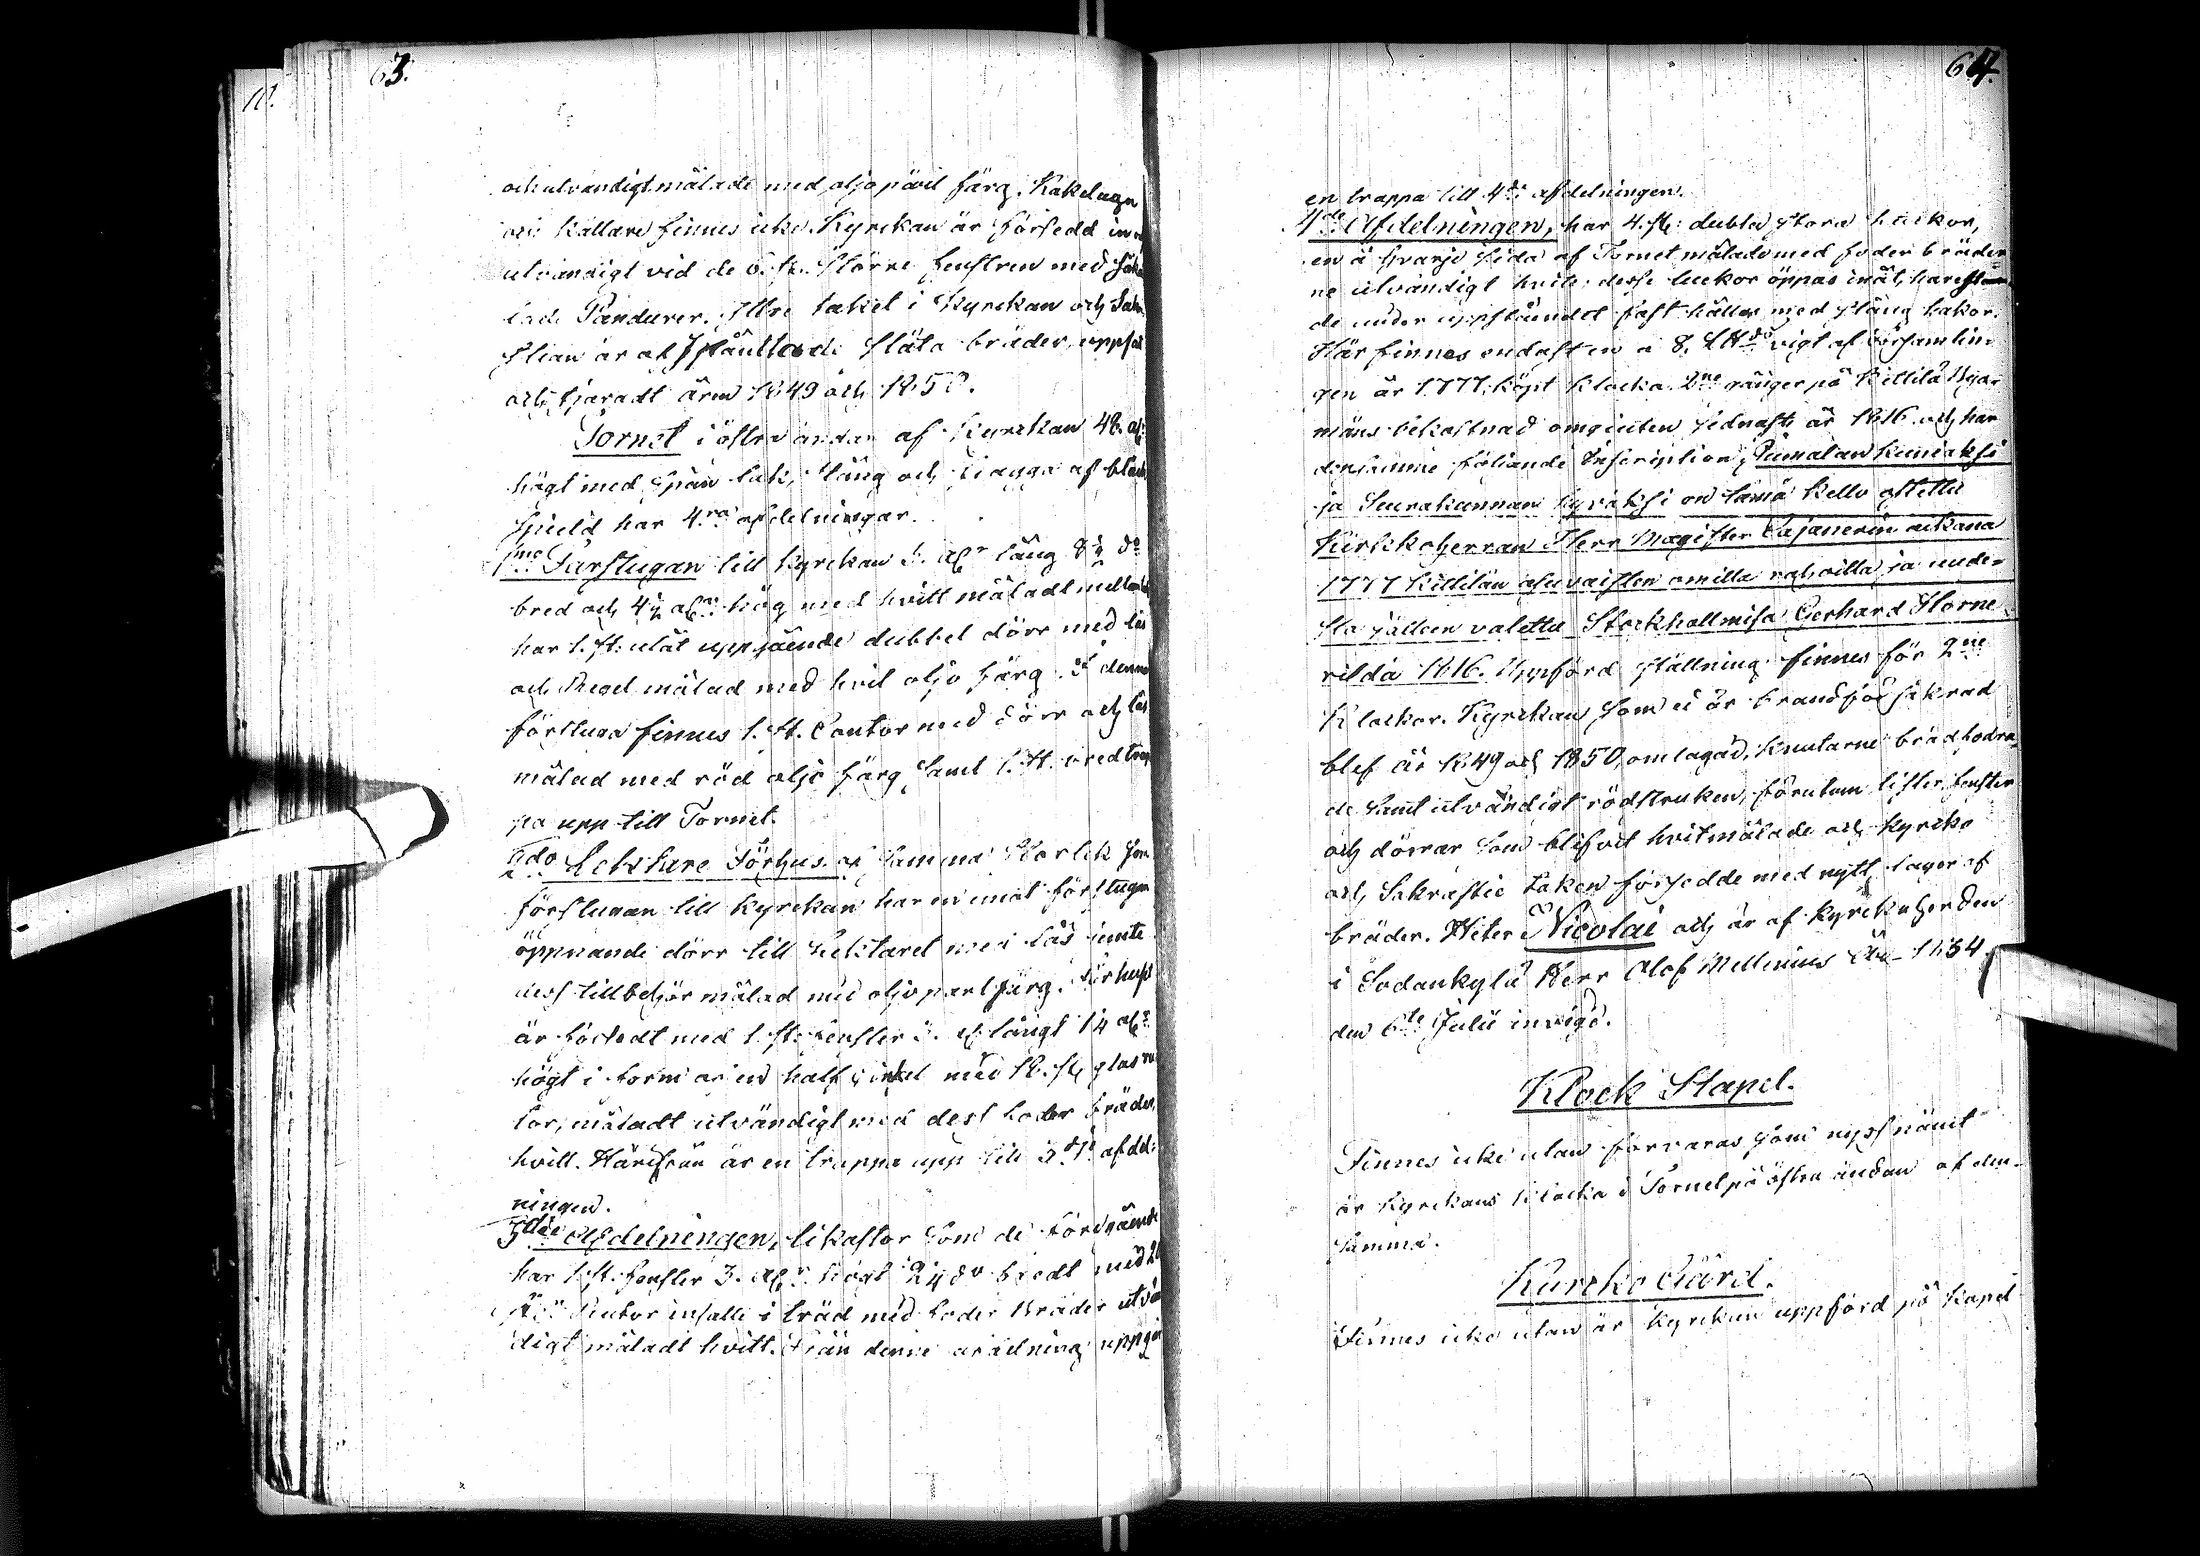 63.
och utvändigt målade med oljo färg. Kakelugn
och källare finnes icke. Kyrckan är försedd in
utvändigt vid de 6. st. större fenstren med
lade Pandurer. Yttre taket i Kyrckan och Sakri-
stian är af släta bräder, uppsat
och tjäradt åren 1849 och 1850.
Tornet i östra ändan af Kyrckan 48. al:
högt med spån tak, stång och flagga af bläck
har 4.ra afdelningar.
1mo Farstugan till Kyrckan 5. alr lång 8½ do
bred och 4½ alr hög med hvitt måladt mellantak
har 1. st: utåt uppgående dubbel dörr med lås
och Regel målad med hvit oljo färg. I denna
förstuga finnes 1. st. Contor med dörr och lås
målad med röd oljo färg samt 1. st. bred trap-
pa upp till Tornet.
2do Lektare Förhus af samma Storlek som
förstugan till Kyrckan har en inåt förstugan
öppnande dörr till Lektaret med lås jemte
dess tillbehör målad med oljo perlfärg. Förhuset
är försedt med 1. st. fenster 3. al: långt 1¼ alr
högt i form af en half cirkel med 18. st. glas ru-
tor, måladt utvändigt med dess foder bräder
hvitt. Härifrån är en trappa upp till 3dje afdel-
ningen.
3dje Afdelningen, lika stor som de föregående
har 1. st. fenster 3. alr högt 2¼ do bredt med 20
st. Rutor infalle i träd med foder Bräder utvän
digt måladt hvitt. Från denne afdelning uppgår
64.
en trappa till 4de afdelningen.
4de Afdelningen, har 4. st: dubla stora luckor,
en å hvarje sida af Tornet målade med foder bräder
ne utvändigt hvite; desse luckor öppas inåt,
de under uppståendet fast hålles med stång hakor.
Här finnes endast en a 8. vigt af Församlin-
gen år 1777. köpt klocka. 2ne gånger på Kittilä Byar
mäns bekostnad omgiuten sednast år 1816. och har
densamme följande Inscription; Jumalan kuniaksi
ja Seurakunnan hyväksi on tämä kello ostettu
Kirkkoherran Herr Magister Cajanerin aikana
1777 Kittilän asuvaisten omilla raholla, ja uude-
sta jälleen valettu Stockhollmisa Gerhard Horne-
rilda 1816. Uppförd ställning finnes för 2ne
Klockor. Kyrckan som ei är brandförsäkrad
blef år 1849 och 1850, omlagad, knutarne brädfodra-
de samt utvändigt rödstruken, förutom lister, fenster
och dörrar som blifvit hvitmålade och kyrcko
och Sakrastie taken försedde med nytt lager af
bräder. Heter Nicolai och är af Kyrckoherden
i Sodankylä Herr Olof Mellenius År 1834
den 6te Julii invigd.
Klock Stapel.
Finnes icke utan förvaras som nyss nämt
är Kyrckans klocka i Tornet på östra ändan af den-
samma.
Kyrcko Gård.
Finnes icke utan är kyrckan uppförd på Kapel